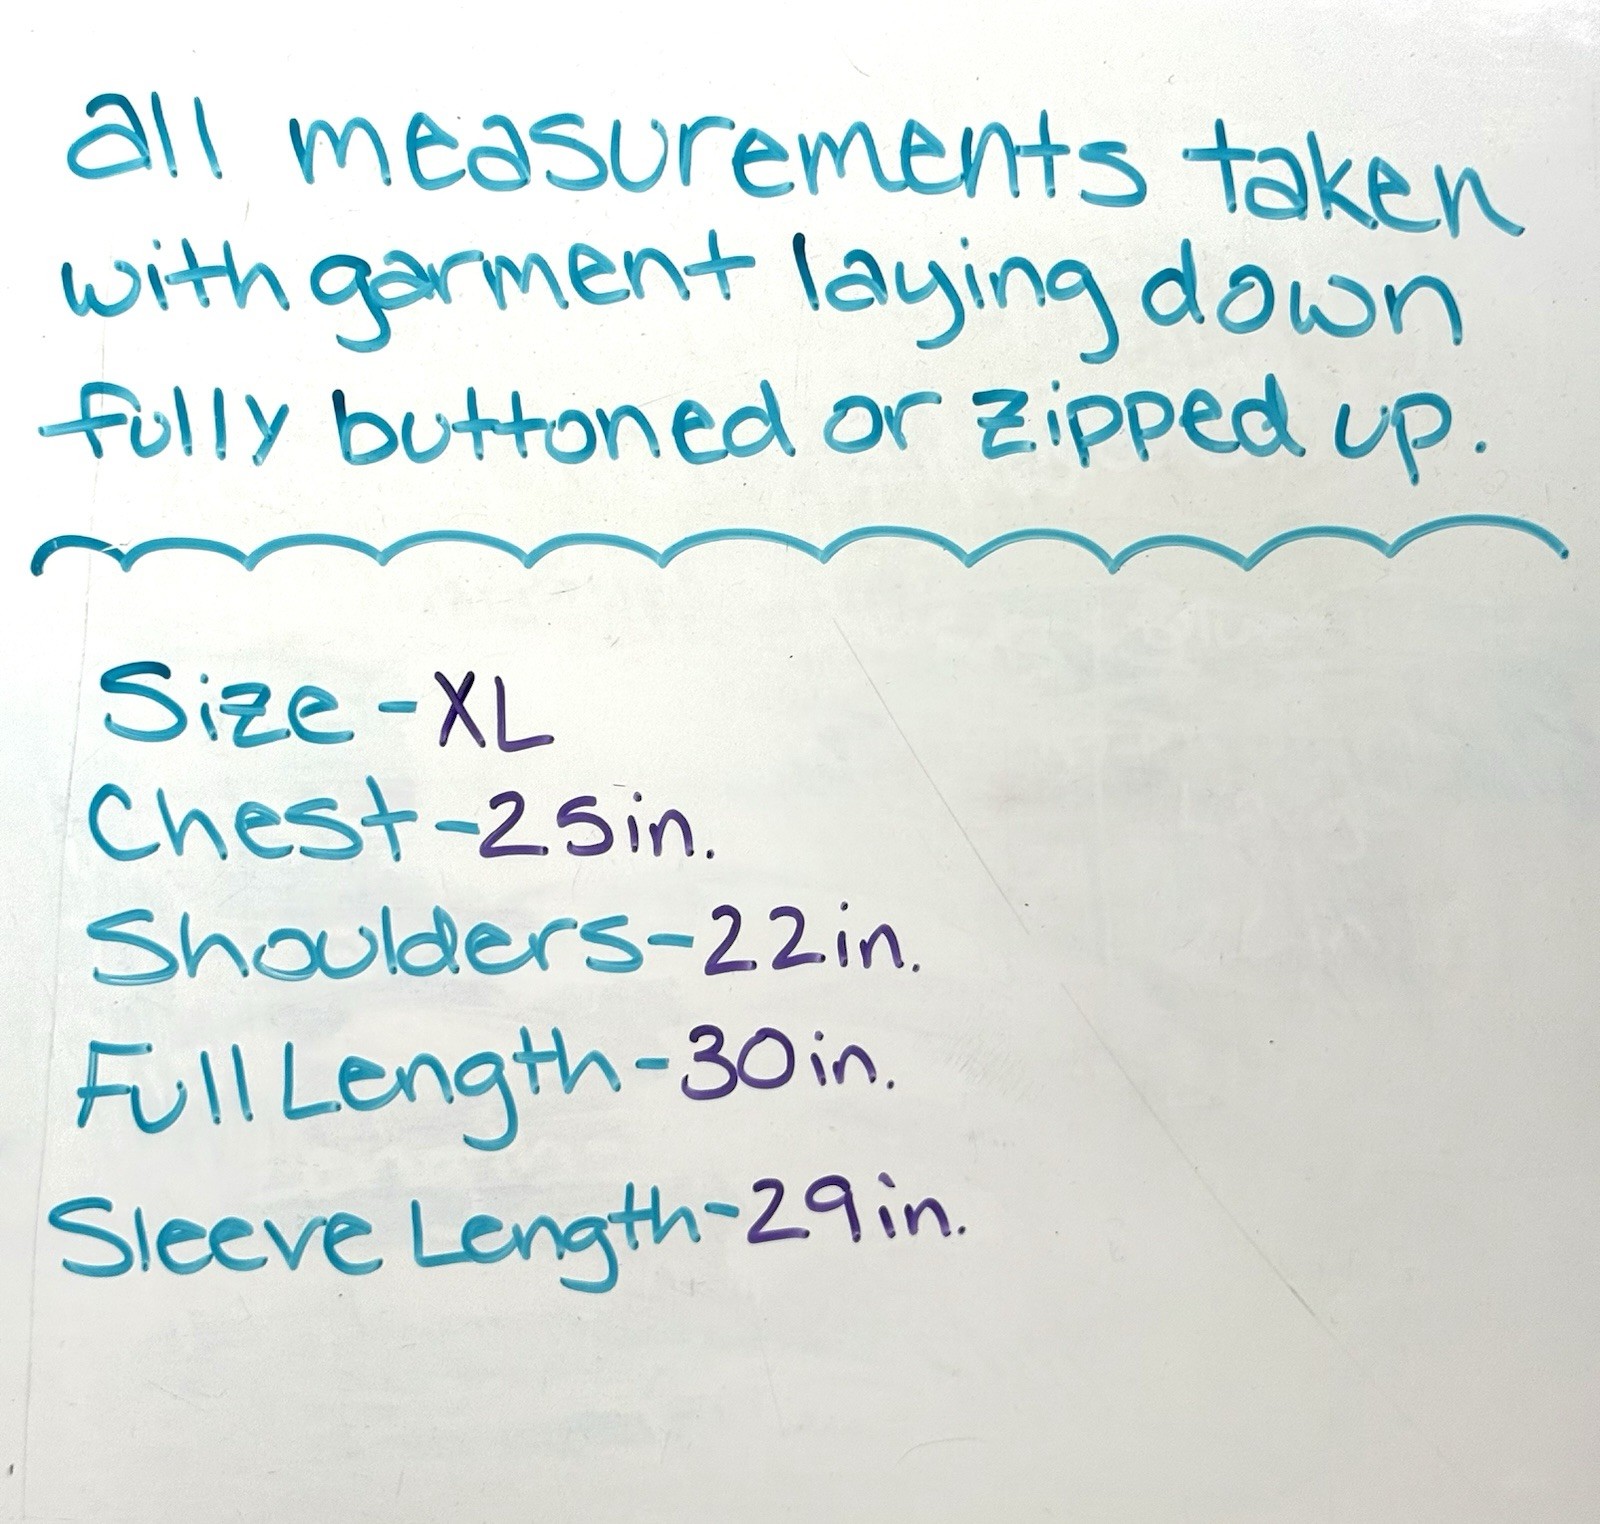 all measurements taken
with garment laying down
fully buttoned or zipped up.
Size - XL
Chest - 25in.
Shoulders - 22in.
Full Length - 30in.
Sleeve Length - 29in.